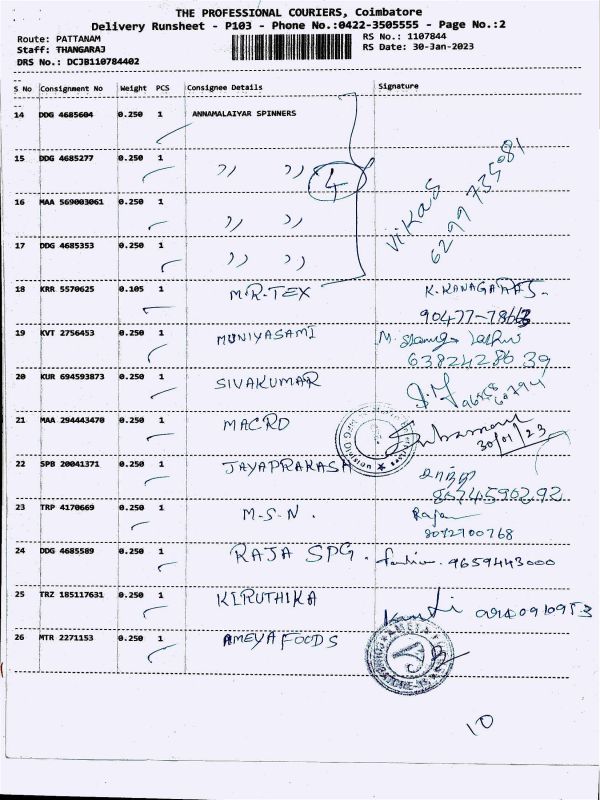 THE PROFESSIONAL COURIERS, Coimbatore
Delivery Runsheet - P103 - Phone No.:0422-3505555 - Page No.:2
Route: PATTANAM
RS No.: 1107844
Staff: THANGARAJ
RS Date: 30-Jan-2023
DRS No.: DCJB110784402
S No Consignment No Weight PCS Consignee Details Signature
14 DDG 4685604 0.250 1 ANNAMALAIYAR SPINNERS
15 DDG 4685277 0.250 1 ,, ,, 4
16 MAA 569003061 0.250 1 ,, ,, Vikas
17 DDG 4685353 0.250 1 ,, ,,
18 KRR 5570625 0.105 1 M.R.TEX K.KANAGARAJ.
19 KVT 2756453 0.250 1 MUNIYASAMI
6382428639
20 KUR 694593873 0.250 1 SIVAKUMAR
21 MAA 294443470 0.250 1 MACRO
30/01/23
22 SPB 20041371 0.250 1 JAYAPRAKASH
23 TRP 4170669 0.250 1 M.S.N. Rajan
8072700768
24 DDG 4685589 0.250 1 RAJA SPG. 9659443000
25 TRZ 185117631 0.250 1 KIRUTHIKA
26 MTR 2271153 0.250 1 AMEYA FOODS
10